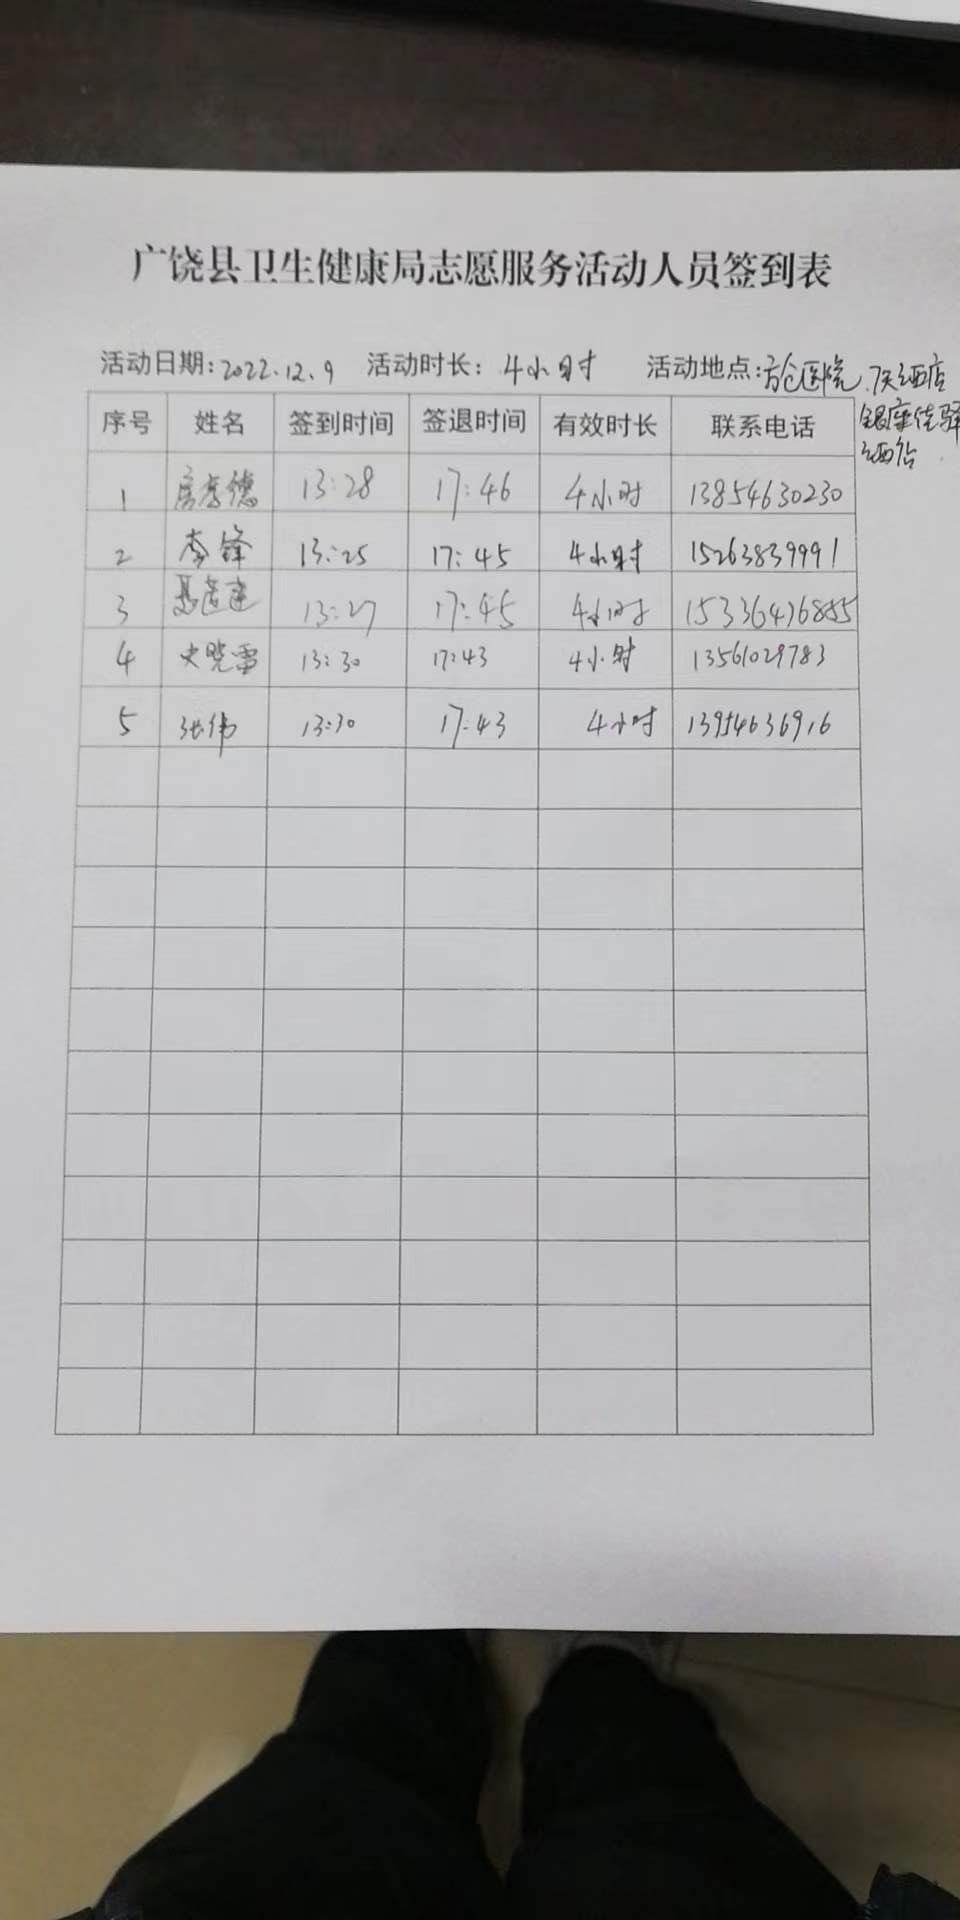 广饶县卫生健康局志愿服务活动人员签到表
活动日期:2022.12.9 活动时长:4小时 活动地点:方仓医院、酒店
银座佳驿
酒店
序号 姓名 签到时间 签退时间 有效时长 联系电话
1 13:28 17:46 4小时 13854630230
2 李锋 13:25 17:45 4小时 15263839991
3 13:27 17:45 4小时 15336476855
4 史晓雷 13:30 17:43 4小时 13561029783
5 张伟 13:30 17:43 4小时 13954636916